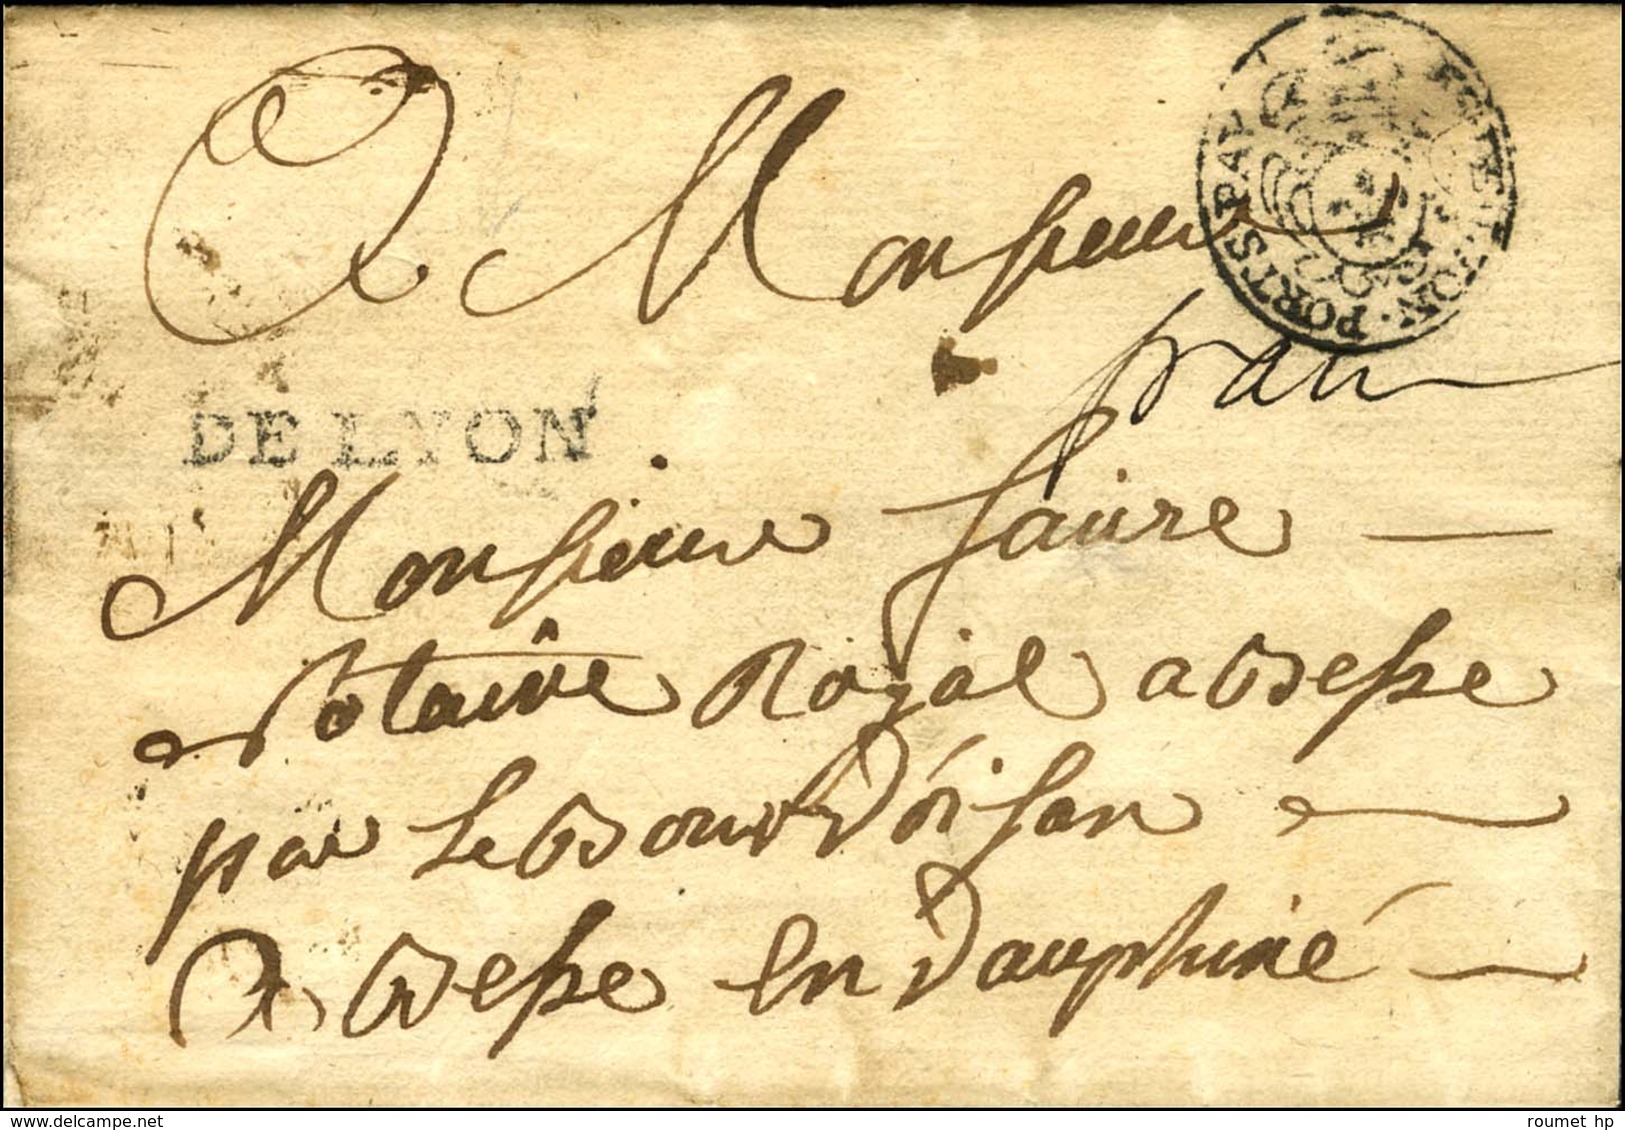 A Monsieur
PORTS PAY
fran
DE LYON
Monsieur faure
Notaire Royal a Besse
par Le Bourd d'oisan
A Besse en Dauphiné
www.delcampe.net
roumet hp